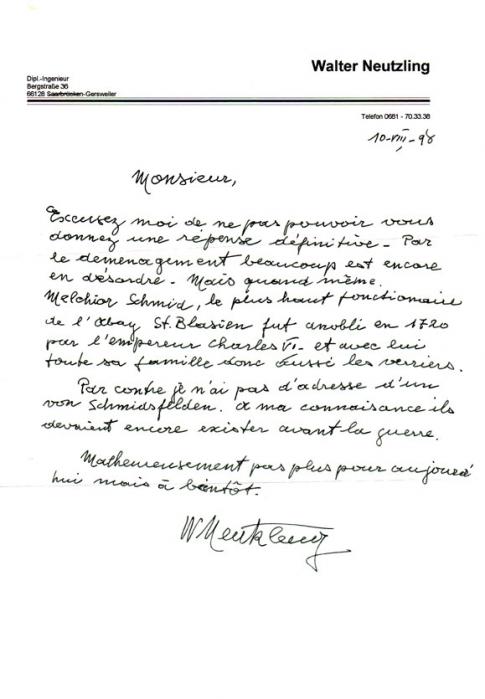 Walter Neutzling
Dipl.-Ingenieur
Bergstraße 36
66128 Saarbrücken-Gersweiler
Telefon 0681 - 70.33.36
10-VIII-98
Monsieur,
Excusez moi de ne pas pouvoir vous
donnez une réponse définitive. Par
le demenagement beaucoup est encore
en désordre. Mais quand même.
Melchior Schmid, le plus haut fonctionaire
de l'Abay St. Blasien fut anobli en 1720
par l'empereur Charles VI. et avec lui
toute sa famille donc aussi les verriers.
Par contre je n'ai pas d'adresse d'un
von Schmidsfelden. A ma connaisance ils
devraient encore exister avant la guerre.
Malheureusement pas plus pour aujourd'
hui mais à bientôt.
WNeutzling